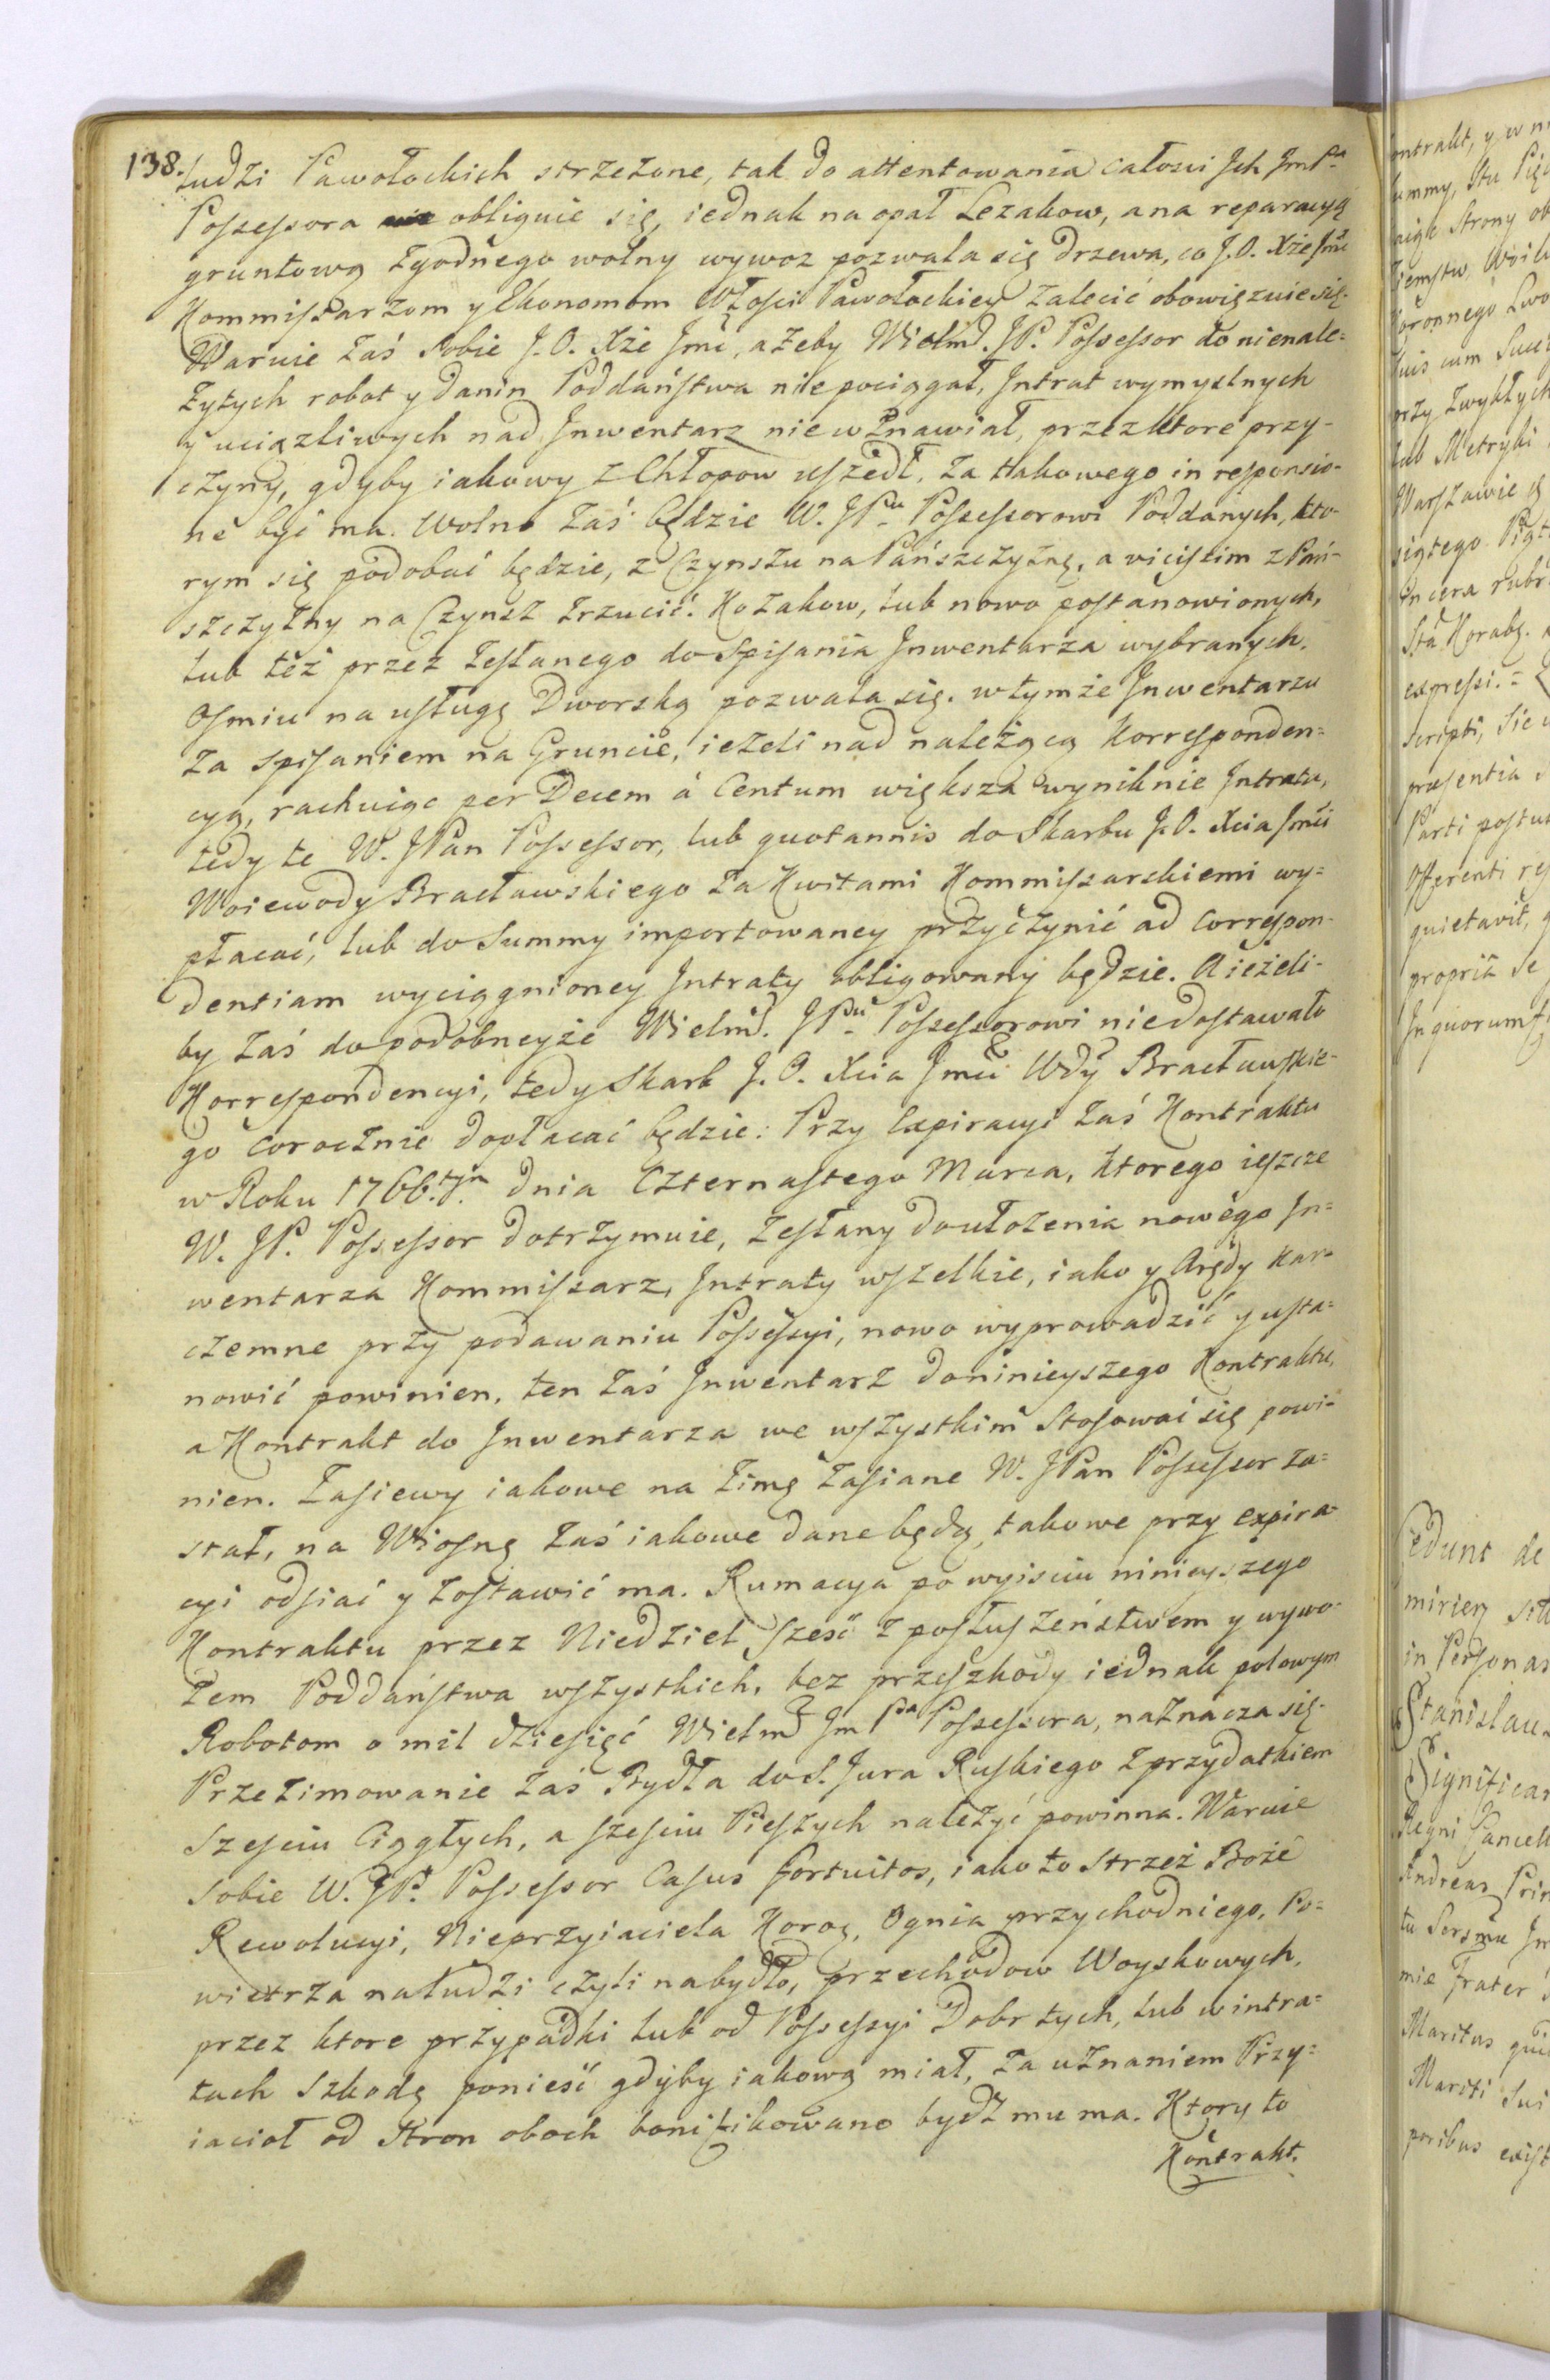 138.
ludzi Pawołockich strzeżone, tak do attentowania całosci Jch JmPa
Possessora obliguie się, iednak na opał Lezakow, a na reparacyą
gruntową zgodnego wolny wywoz pozwala się drzewa, co J.O. Xże Jmć
Kommissarzom y Ekonomom Włosci Pawołockiey zalecić obowięzuie się.
Waruie zaś sobie J.O. Xże Jmć, ażeby Wielmd. JP. Possessor do nienale=
żytych robot y danin Poddaństwa nie pociągał, Jntrat wymyslnych
y uciązliwych nad Jnwentarz nie wznawiał, przez ktore przy-
czyny, gdyby iakowy z Chłopow uszedł, za takowego in responsio-
ne być ma. Wolno zaś będzie W. JPu Possessorowi Poddanych, kto-
rym się podobać będzie, z Czynszu na Pańszczyznę, a vicissim z Pań-
szczyzny na Czynsz zrzucić. Kozakow, lub nowo postanowionych,
lub też przez zesłanego do spisania Jnwentarza wybranych,
osmiu na usługę Dworską pozwala się. w tymże Jnwentarzu
za spisaniem na Gruncie, ieżeli nad należącą Korresponden=
cyą, rachuiąc per Decem á Centum większa wyniknie Jntrata,
tedy te W. JPan Possessor, lub quotannis do Skarbu J.O. Xcia Jmci
Woiewody Bracławskiego za Kwitami Kommissarskiemi wy=
płacać, lub do Summy importowaney przyczynić ad Correspon-
dentiam wyciągnioney Jntraty obligowany będzie. A ieżeli-
by zaś do podobneyże Wielmd. JPu Possessorowi niedostawało
Korrespondencyi, tedy Skarb J.O. Xcia Jmci Wdy Bracławskie-
go corocznie dopłacać będzie: Przy Expiracyi zaś Kontraktu
w Roku 1766.tym dnia Czternastego Marca, ktorego ieszcze
W. JP. Possessor dotrzymuie, zesłany do ułozenia nowego Jn=
wentarza Kommissarz, Jntraty wszelkie, iako y Arędy Kar-
czemne przy podawaniu Possessyi, nowo wyprowadzić y usta=
nowić powinien, ten zaś Jnwentarz do ninieyszego Kontraktu,
a Kontrakt do Jnwentarza we wszystkim stosować się powi-
nien. Zasiewy iakowe na zimę zasiane W. JPan Possessor za=
stał, na Wiosnę zaś iakowe dane będą, takowe przy expira-
cyi odsiać y zostawić ma. Rumacya po wyisciu ninieyszego
Kontraktu przez Niedziel sześć z posłuszeństwem y wywo-
zem Poddaństwa wszystkich, bez przeszkody iednak polowym
Robotom o mil dziesięć Wielmd Jm Pa Possessora, naznacza się.
Przezimowanie zaś Bydła do S. Jura Ruskiego z przydatkiem
szesciu Ciągłych, a szesciu Pieszych należyć powinna. Waruie
sobie W. JP. Possessor Casus fortuitos, iako to strzeż Boże
Rewolucyi, Nieprzyiaciela Korog, Ognia przychodniego, Po=
wietrza na ludzi czyli na bydło, przechodow Woyskowych,
przez ktore przypadki lub od Possessyi Dobr tych, lub w intra=
tach szkodę ponieść gdyby iakową miał, za uznaniem Przy=
iacioł od Stron oboch bonifikowano bydź mu ma. Ktory to
Kontrakt.